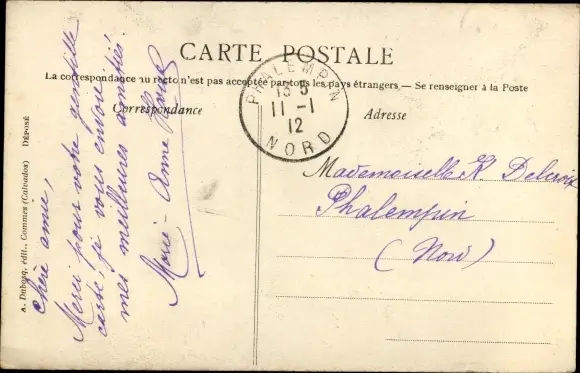 CARTE POSTALE
La correspondance au recto n'est pas acceptée par tous les pays étrangers. — Se renseigner à la Poste
Correspondance
Adresse
PHALEMPIN
11 -1
12
NORD
Chère amie,
Merci pour votre gentille
carte, je vous envoie
mes meilleures amitiés.
Marie-Anne
Mademoiselle K. Delcroix
Phalempin
(Nord)
A. Dubosq, édit., Commes (Calvados) DÉPOSÉ